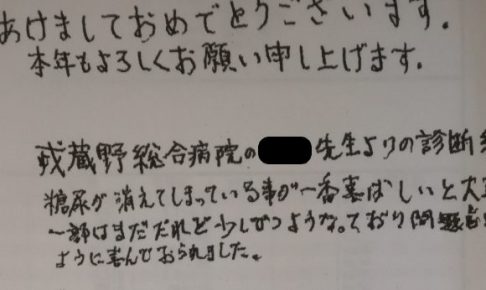 あけましておめでとうございます.
本年もよろしくお願い申し上げます.
武蔵野総合病院の先生よりの診断
糖尿が消えてしまっている事が一番喜ばしいと大
一部はまだだれど少しづつようなっており問題
ように喜んでおられました。